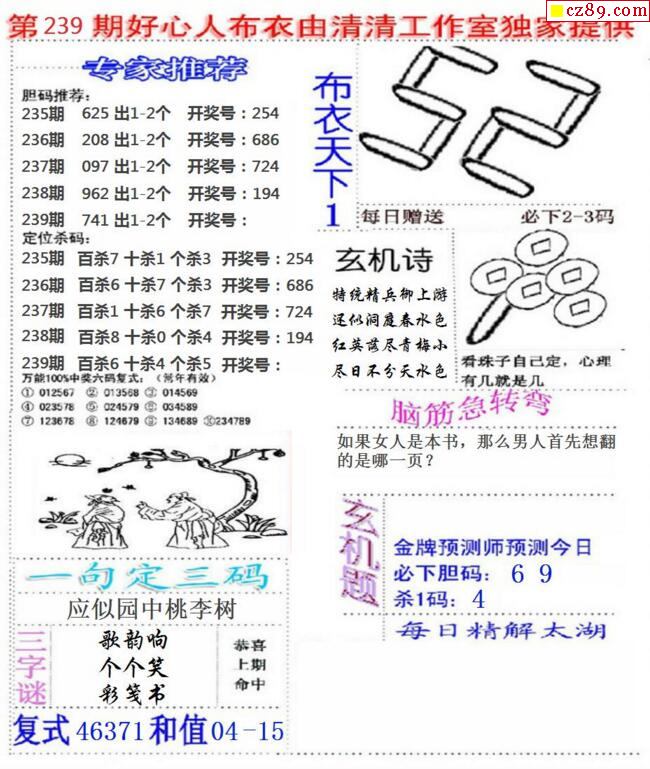 cz89.com
第239期好心人布衣由清清工作室独家提供
专家推荐
胆码推荐:
235期 625 出1-2个 开奖号:254
236期 208 出1-2个 开奖号:686
237期 097 出1-2个 开奖号:724
238期 962 出1-2个 开奖号:194
239期 741 出1-2个 开奖号:
定位杀码:
235期 百杀7 十杀1 个杀3 开奖号:254
236期 百杀6 十杀7 个杀3 开奖号:686
237期 百杀1 十杀6 个杀7 开奖号:724
238期 百杀8 十杀0 个杀4 开奖号:194
239期 百杀6 十杀4 个杀5 开奖号:
万能100%中奖六码复式:(常年有效)
① 012567 ② 013568 ③ 014569
④ 023578 ⑤ 024579 ⑥ 034589
⑦ 123678 ⑧ 124679 ⑨ 134689 ⑩234789
布衣天下1
52
每日赠送 必下2-3码
玄机诗
特统精兵御上游
还似洞庭春水色
红英落尽青梅小
尽日不分天水色
看珠子自己定,心理
有几就是几
脑筋急转弯
如果女人是本书,那么男人首先想翻
的是哪一页?
一句定三码
应似园中桃李树
三字谜
歌韵响
个个笑
彩笺书
恭喜
上期
命中
复式46371和值04-15
玄机题
金牌预测师预测今日
必下胆码: 6 9
杀1码: 4
每日精解太湖